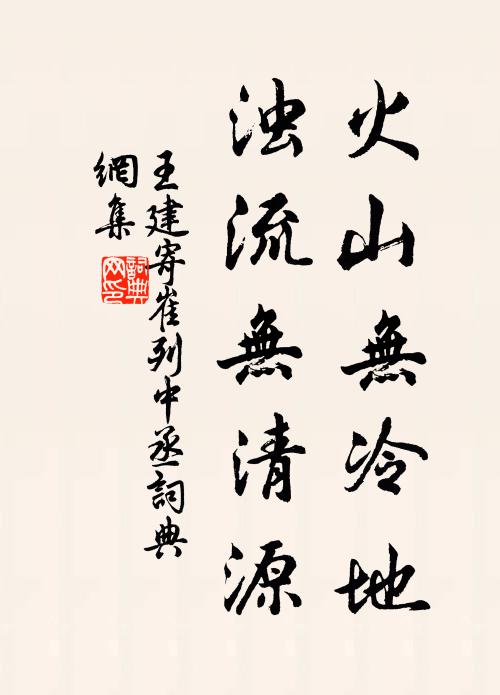 火山無冷地
浊流無清源
王建寄崔列中丞詞典
網集
詞典網印